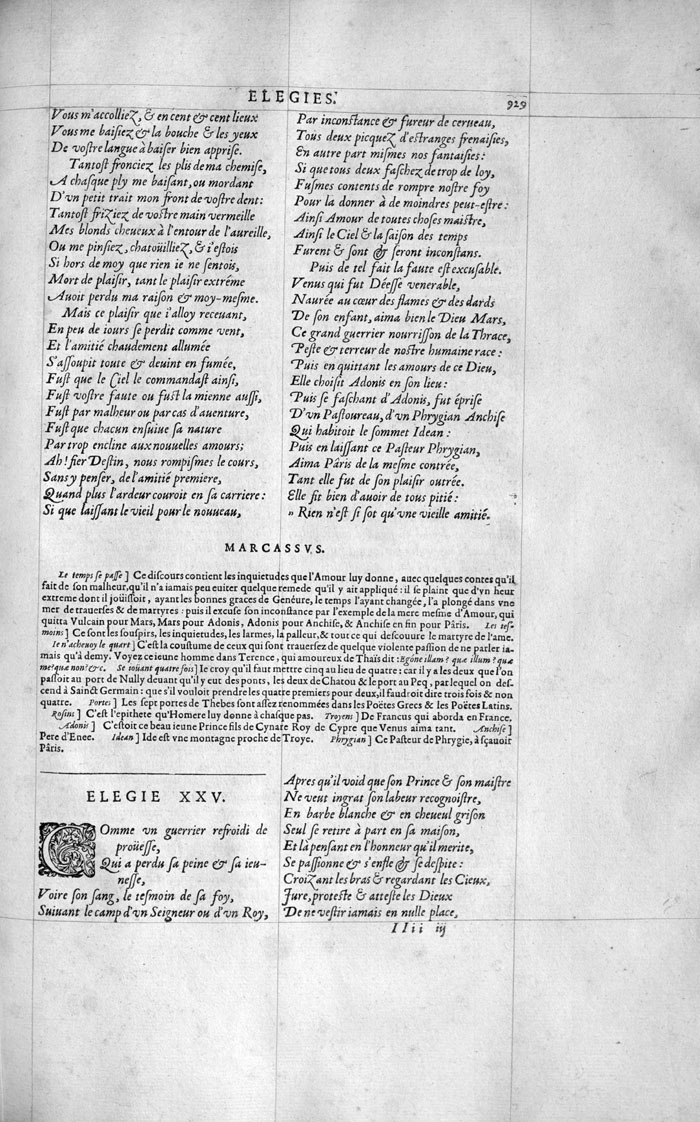 ELEGIES. 929
Vous m'accolliez, & en cent & cent lieux
Vous me baisiez & la bouche & les yeux
De vostre langue à baiser bien apprise.
Tantost fronciez les plis de ma chemise,
A chasque ply me baisant, ou mordant
D'vn petit trait mon front de vostre dent:
Tantost friziez de vostre main vermeille
Mes blonds cheueux à l'entour de l'aureille,
Ou me pinsiez, chatoüilliez, & i'estois
Si hors de moy que rien ie ne sentois,
Mort de plaisir, tant le plaisir extréme
Auoit perdu ma raison & moy-mesme.
Mais ce plaisir que i'alloy receuant,
En peu de iours se perdit comme vent,
Et l'amitié chaudement allumée
S'assoupit toute & deuint en fumée,
Fust que le Ciel le commandast ainsi,
Fust vostre faute ou fust la mienne aussi,
Fust par malheur ou par cas d'auenture,
Fust que chacun ensuiue sa nature
Par trop encline aux nouuelles amours;
Ah! fier Destin, nous rompismes le cours,
Sans y penser, de l'amitié premiere,
Quand plus l'ardeur couroit en sa carriere:
Si que laissant le vieil pour le nouueau,
Par inconstance & fureur de cerueau,
Tous deux picquez d'estranges frenaisies,
En autre part mismes nos fantaisies:
Si que tous deux faschez de trop de loy,
Fusmes contents de rompre nostre foy
Pour la donner à de moindres peut-estre:
Ainsi Amour de toutes choses maistre,
Ainsi le Ciel & la saison des temps
Furent & sont & seront inconstans.
Puis de tel fait la faute est excusable.
Venus qui fut Déesse venerable,
Naurée au cœur des flames & des dards
De son enfant, aima bien le Dieu Mars,
Ce grand guerrier nourrisson de la Thrace,
Peste & terreur de nostre humaine race:
Puis en quittant les amours de ce Dieu,
Elle choisit Adonis en son lieu:
Puis se faschant d'Adonis, fut éprise
D'vn Pastoureau, d'vn Phrygian Anchise
Qui habitoit le sommet Idean:
Puis en laissant ce Pasteur Phrygian,
Aima Pâris de la mesme contrée,
Tant elle fut de son plaisir outrée.
Elle fit bien d'auoir de tous pitié:
» Rien n'est si sot qu'vne vieille amitié.
MARCASSVS.
Le temps se passe ] Ce discours contient les inquietudes que l'Amour luy donne, auec quelques contes qu'il
fait de son malheur, qu'il n'a iamais peu euiter quelque remede qu'il y ait appliqué: il se plaint que d'vn heur
extreme dont il joüissoit, ayant les bonnes graces de Genéure, le temps l'ayant changée, l'a plongé dans vne
mer de trauerses & de martyres: puis il excuse son inconstance par l'exemple de la mere mesme d'Amour, qui
quitta Vulcain pour Mars, Mars pour Adonis, Adonis pour Anchise, & Anchise en fin pour Pâris. Les tes-
moins ] Ce sont les souspirs, les inquietudes, les larmes, la palleur, & tout ce qui descouure le martyre de l'ame.
Ie n'acheuoy le quart ] C'est la coustume de ceux qui sont trauersez de quelque violente passion de ne parler ia-
mais qu'à demy. Voyez ce ieune homme dans Terence, qui amoureux de Thaïs dit: Egóne illam? quæ illum? quæ
me? quæ non? &c. Se joüant quatre fois ] Ie croy qu'il faut mettre cinq au lieu de quatre: car il y a les deux que l'on
passoit au port de Nully deuant qu'il y eut des ponts, les deux de Chatou & le port au Peq, par lequel on des-
cend à Sainct Germain: que s'il vouloit prendre les quatre premiers pour deux, il faudroit dire trois fois & non
quatre. Portes ] Les sept portes de Thebes sont assez renommées dans les Poëtes Grecs & les Poëtes Latins.
Rosins ] C'est l'epithete qu'Homere luy donne à chasque pas. Troyens ] De Francus qui aborda en France.
Adonis ] C'estoit ce beau ieune Prince fils de Cynare Roy de Cypre que Venus aima tant. Anchise ]
Pere d'Enee. Idean ] Ide est vne montagne proche de Troye. Phrygian ] Ce Pasteur de Phrygie, à sçauoir
Pâris.
ELEGIE XXV.
Comme vn guerrier refroidi de
proüesse,
Qui a perdu sa peine & sa ieu-
nesse,
Voire son sang, le tesmoin de sa foy,
Suiuant le camp d'vn Seigneur ou d'vn Roy,
Apres qu'il void que son Prince & son maistre
Ne veut ingrat son labeur recognoistre,
En barbe blanche & en cheueul grison
Seul se retire à part en sa maison,
Et là pensant en l'honneur qu'il merite,
Se passionne & s'enfle & se despite:
Croizant les bras & regardant les Cieux,
Jure, proteste & atteste les Dieux
De ne vestir iamais en nulle place,
IIii iij